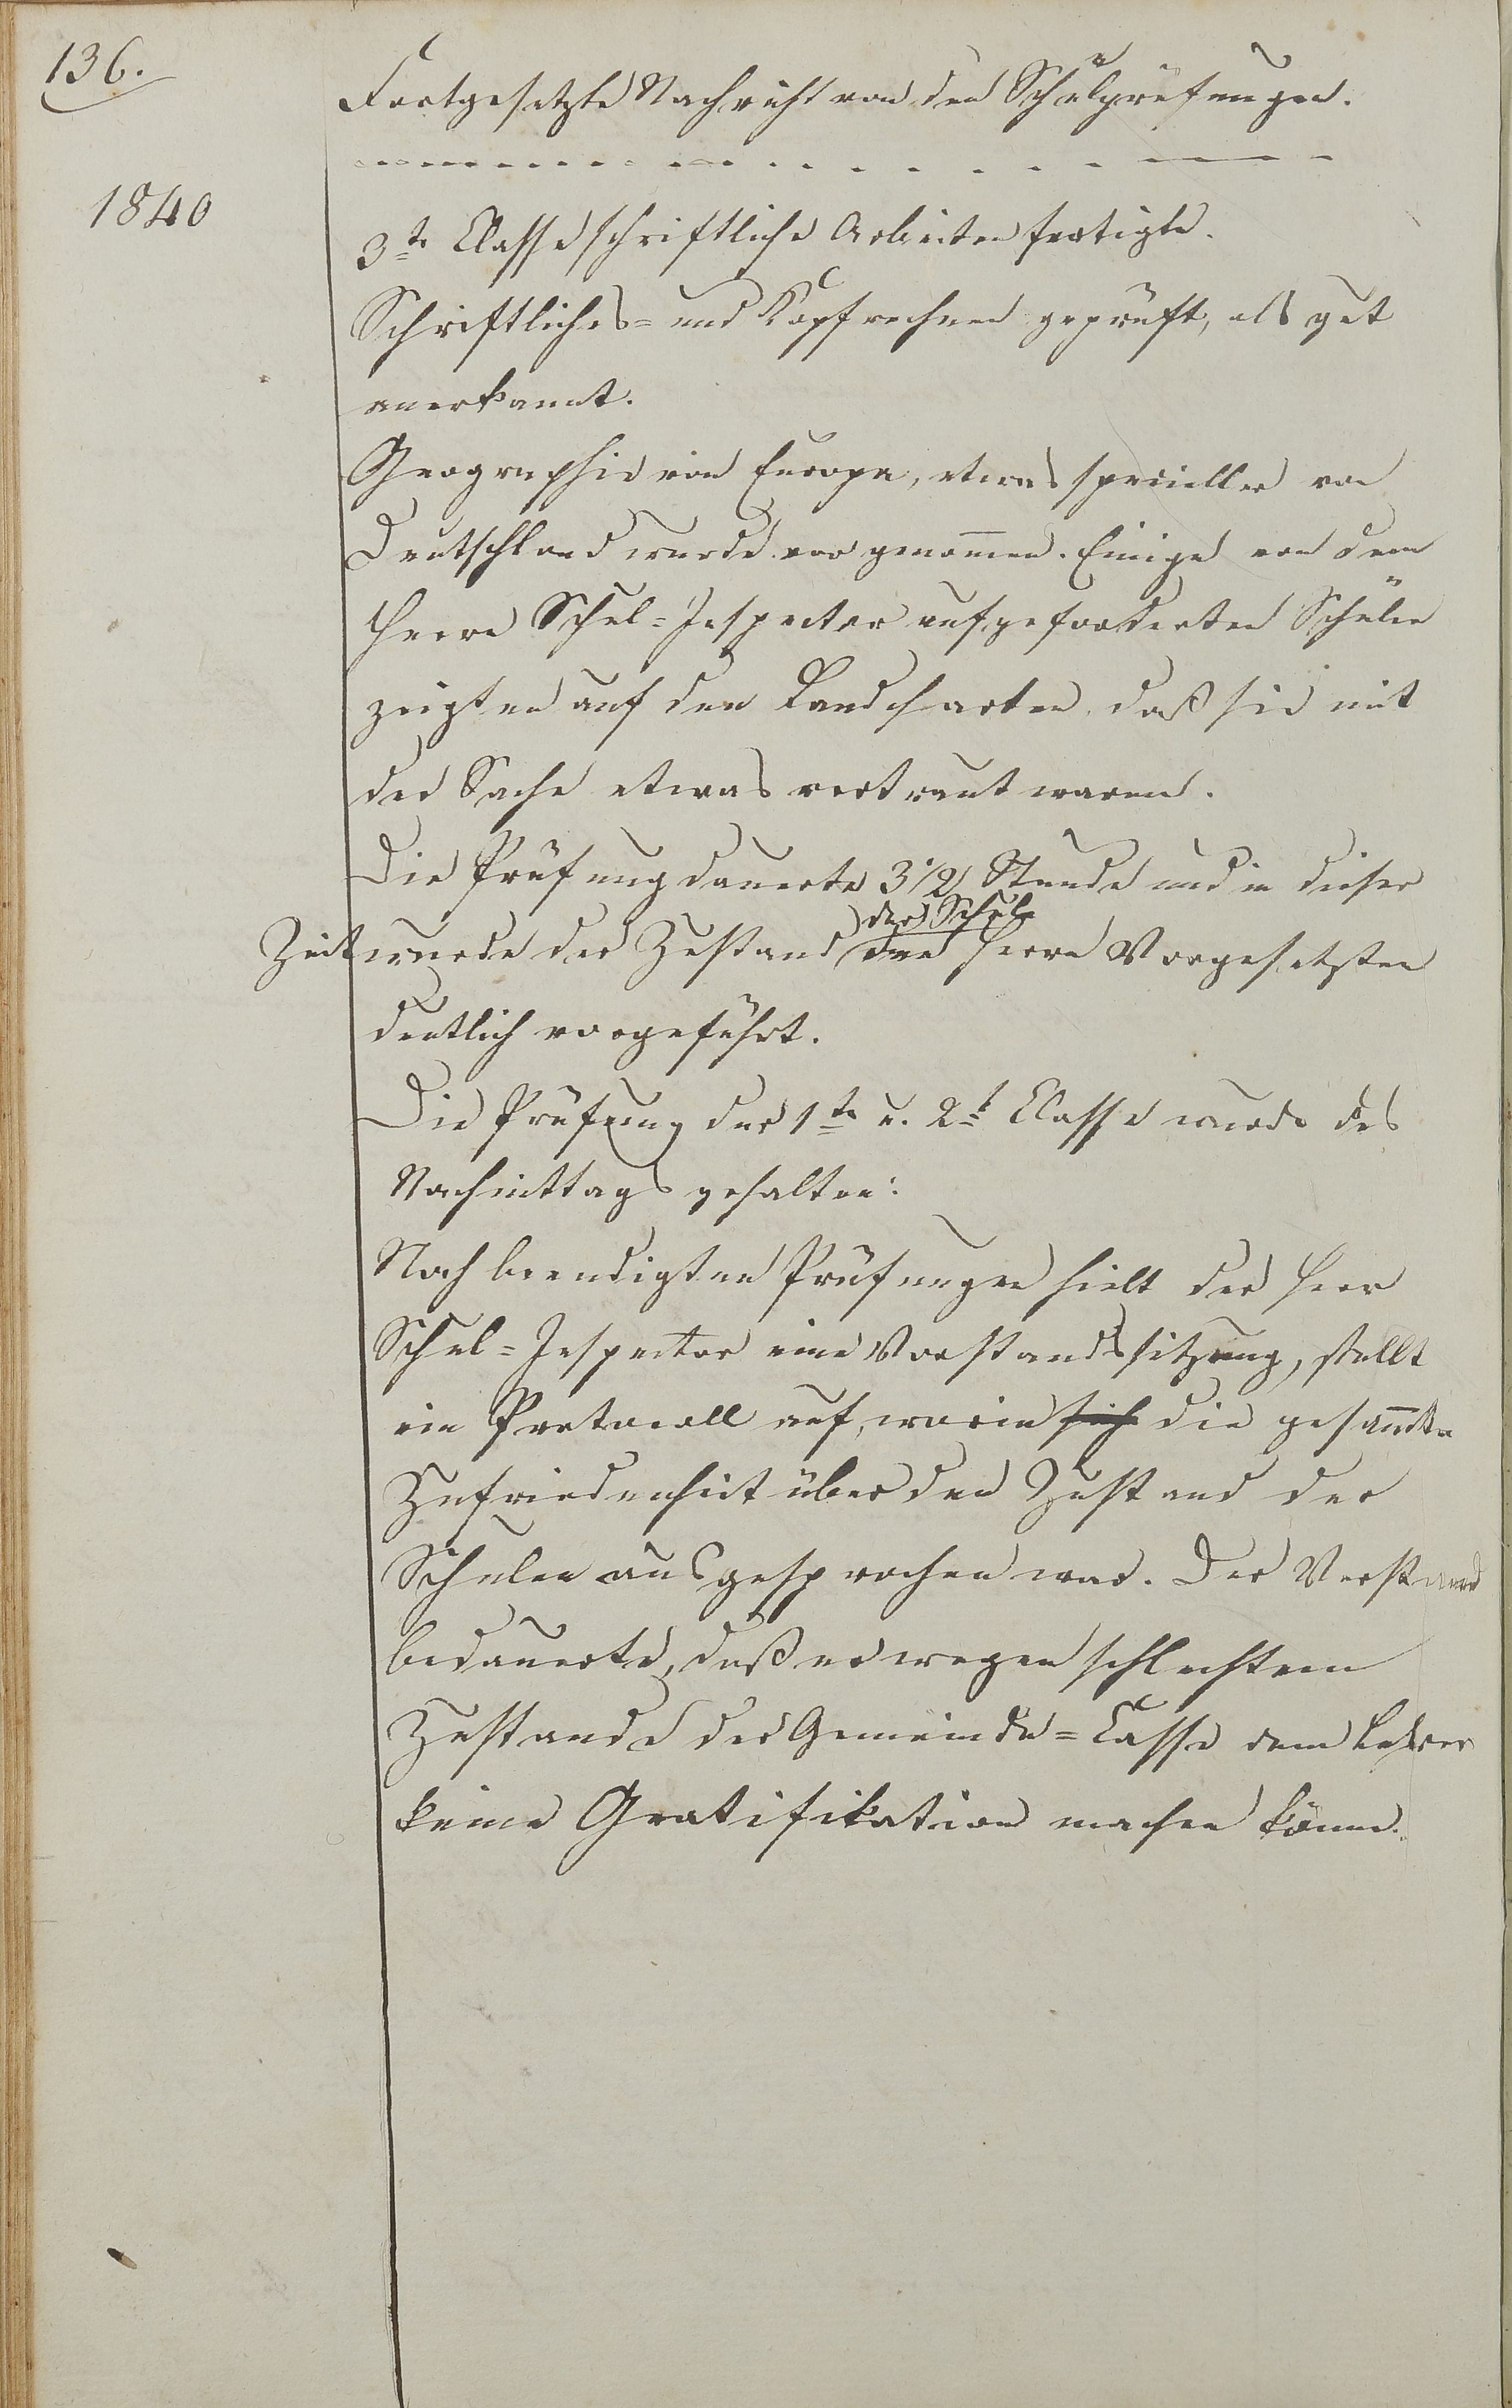 136.
Fortgesetzte Nachricht von den Schulprüfungen.
1840
3te Classe schriftliche Arbeiten fertigte.
Schriftliches- und Kopfrechnen geprüft, als gut
anerkannt.
Geographie von Europa, etwas specieller von
Deutschland wurde vorgenommen. Einige von dem
Herrn Schul-Inspector aufgeforderten Schüler
zeigten auf den Landcharten, daß sie mit
der Sache etwas vertraut waren.
Die Prüfung dauerte 3 1/2 Stunde und in dieser
der Schule
Zeit wurde der Zustand den Herrn Vorgesetzten
deutlich vorgeführt.
Die Prüfung der 1te u. 2t Classe wurde des
Nachmittags gehalten:
Nach beendigten Prüfungen hielt der Herr
Schul-Inspector eine Vorstandssitzung, stellt
ein Protocoll auf, worin sich die gesammte
Zufriedenheit über den Zustand der
Schulen ausgesprochen war. Der Vorstand
bedauerte, daß er wegen schlechtem
Zustande der Gemeinde-Casse dem Lehrer
keine Gratifikation machen könne.